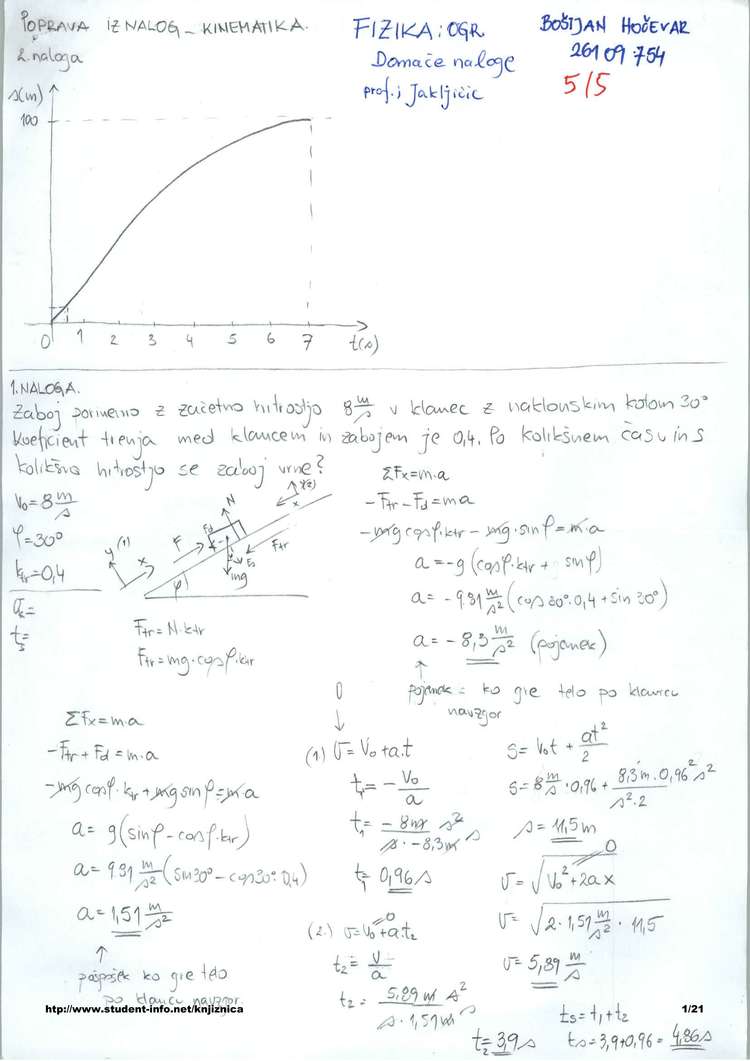 POPRAVA IZ NALOG - KINEMATIKA.
FIZIKA: OGR
BOŠTJAN HOČEVAR
2. naloga
Domače naloge
26109754
prof.: Jakljičič
5/5
s(m)
100
0 1 2 3 4 5 6 7 t(s)
1. NALOGA.
Zaboj porinemo z začetno hitrostjo 8 m/s v klanec z naklonskim kotom 30°
Koeficient trenja med klancem in zabojem je 0,4. Po kolikšnem času in s
kolikšno hitrostjo se zaboj vrne?
V₀ = 8 m/s
φ = 30°
ktr = 0,4
t₅ =
y (1)
x
F
Fd
N
Ftr
mg
φ
x
Ftr = N·ktr
Ftr = mg·cosφ·ktr
ΣFx = m·a
-Ftr - Fd = ma
-mg cosφ·ktr - mg·sinφ = m·a
a = -g (cosφ·ktr + sinφ)
a = -9,81 m/s² (cos30°·0,4 + sin30°)
a = -8,3 m/s² (pojemek)
pojemek = ko gre telo po klancu
navzgor
ΣFx = m·a
-Ftr + Fd = m·a
-mg cosφ·ktr + mg sinφ = m·a
a = g (sinφ - cosφ·ktr)
a = 9,81 m/s² (sin30° - cos30°·0,4)
a = 1,51 m/s²
pospešek ko gre telo
po klancu navzgor.
0
(1) v = V₀ + a·t
t₁ = - V₀/a
t₁ = -8 m s² / s·-8,3 m s
t₁ = 0,96 s
(2.) v = V₀ + a·t₂
0
t₂ = v/a
t₂ = 5,89 m s² / s·1,51 m
t₂ = 3,9 s
s = V₀t + at²/2
s = 8 m/s · 0,96 + 8,3 m·0,96² s² / s²·2
s = 11,5 m
0
v = √(V₀² + 2ax)
v = √(2·1,51 m/s² · 11,5)
v = 5,89 m/s
ts = t₁ + t₂
ts = 3,9 + 0,96 = 4,86 s
http://www.student-info.net/knjiznica
1/21